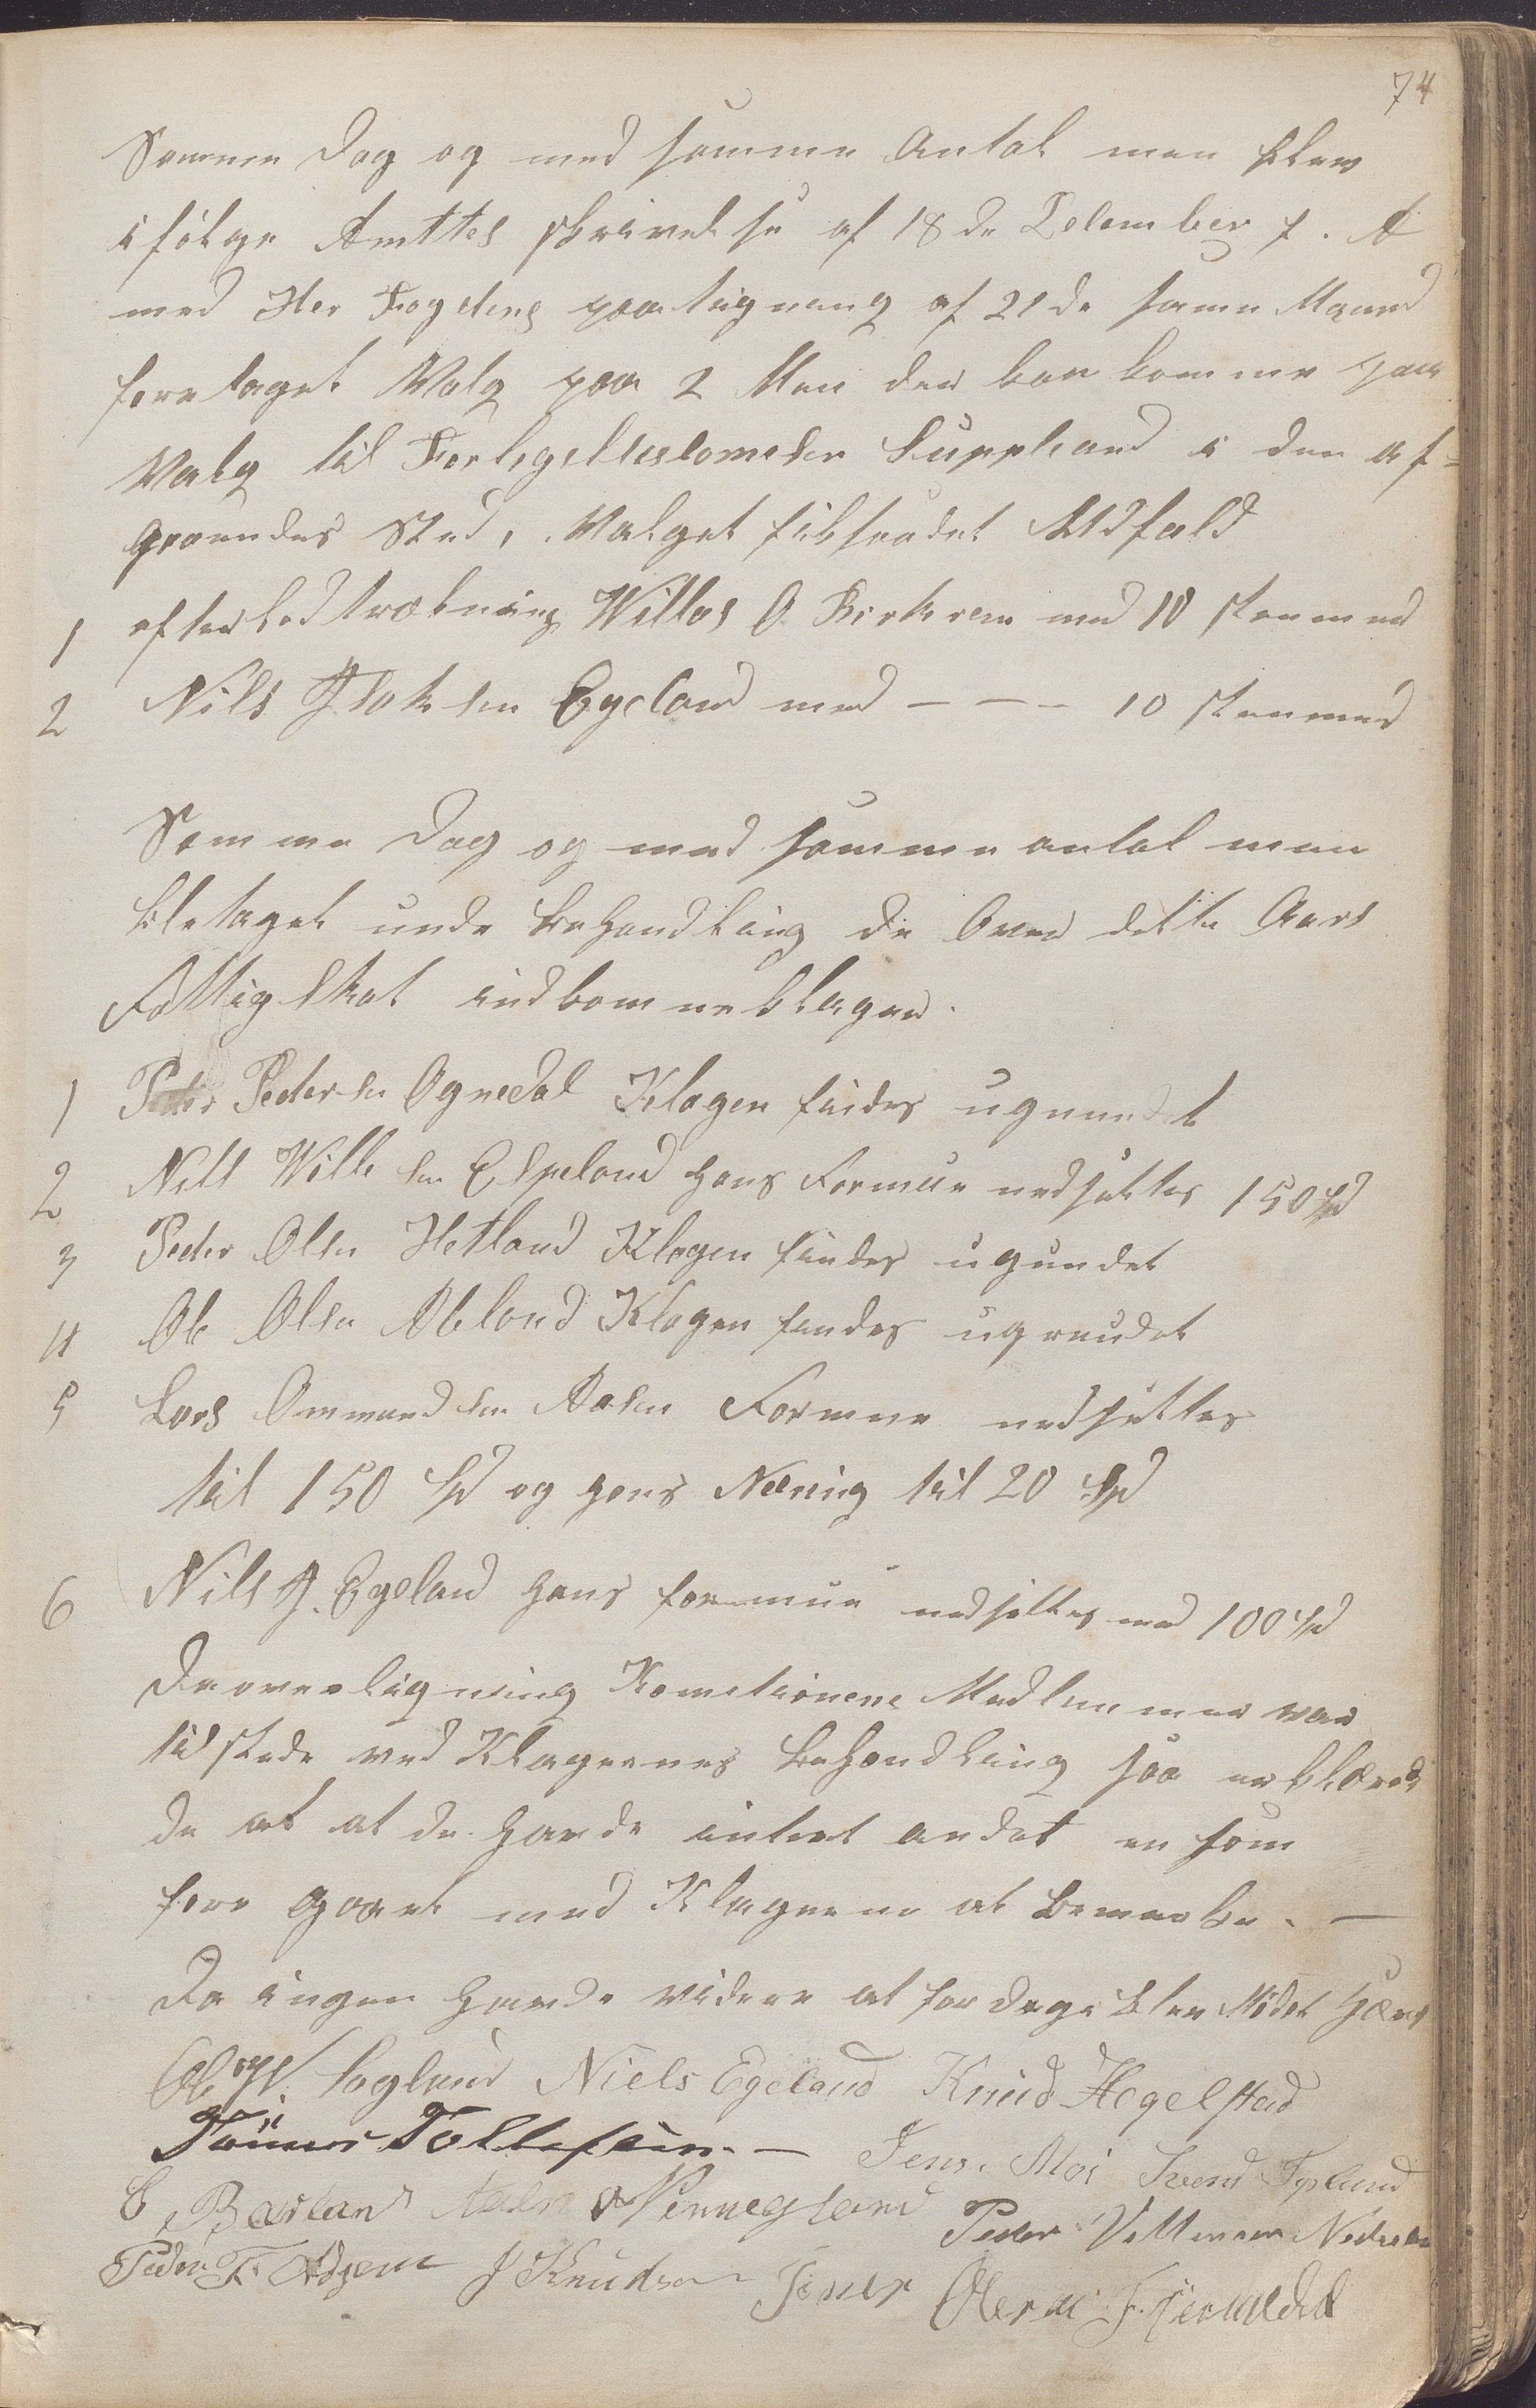 74
Samme Dag og med samme Antal men blev
ifølge Amttes skrivelse af 18de December f. A
med Her Fogdens paategning af 21de samme Maaned
foretaget Valg paa 2 Men der kan komme paa
Valg til Forligelseskomesær Supleant i den af-
gaaendes Sted, Valget fik saadet Udfald
1 efter Lodtrækning Willas O. Birkrem med 10 stemmed
2 Nils Egeland med - - - 10 stemmed
Samme Dag og med samme antal men
blev taget unde Behandling de Over dette Aars
Fattigskat indkomne klager.
1 Peder Pedersen Ognedal Klagen findes ugrundet
2 Nils Willsen Espeland hans Formue nedsættes 150 Spd
3 Peder Olsen Hetland Klagen findes ugundet
4 Ole Olsen Klagen findes ugrundet
5 Lars Ommundsen Formue nedsættes
til 150 Spd og hans Næring til 20 Spd
6 Nils J. Egeland hans formue nedsættes med 100 Spd
De overligning Kometionene Medlemmer var
tilstede ved Klagernes Behandling saa erklærede
de at at de havde intet andet en som
fore gaaet med Klagerne at bemærke. —
Da ingen havde videre at fordrage blev Mødet hævet
Niels Egeland Knud Hegelstad
Tönnes Tollefsen. — Jens. Moi Svend
Peder
Peder T. J Knudsen Jones